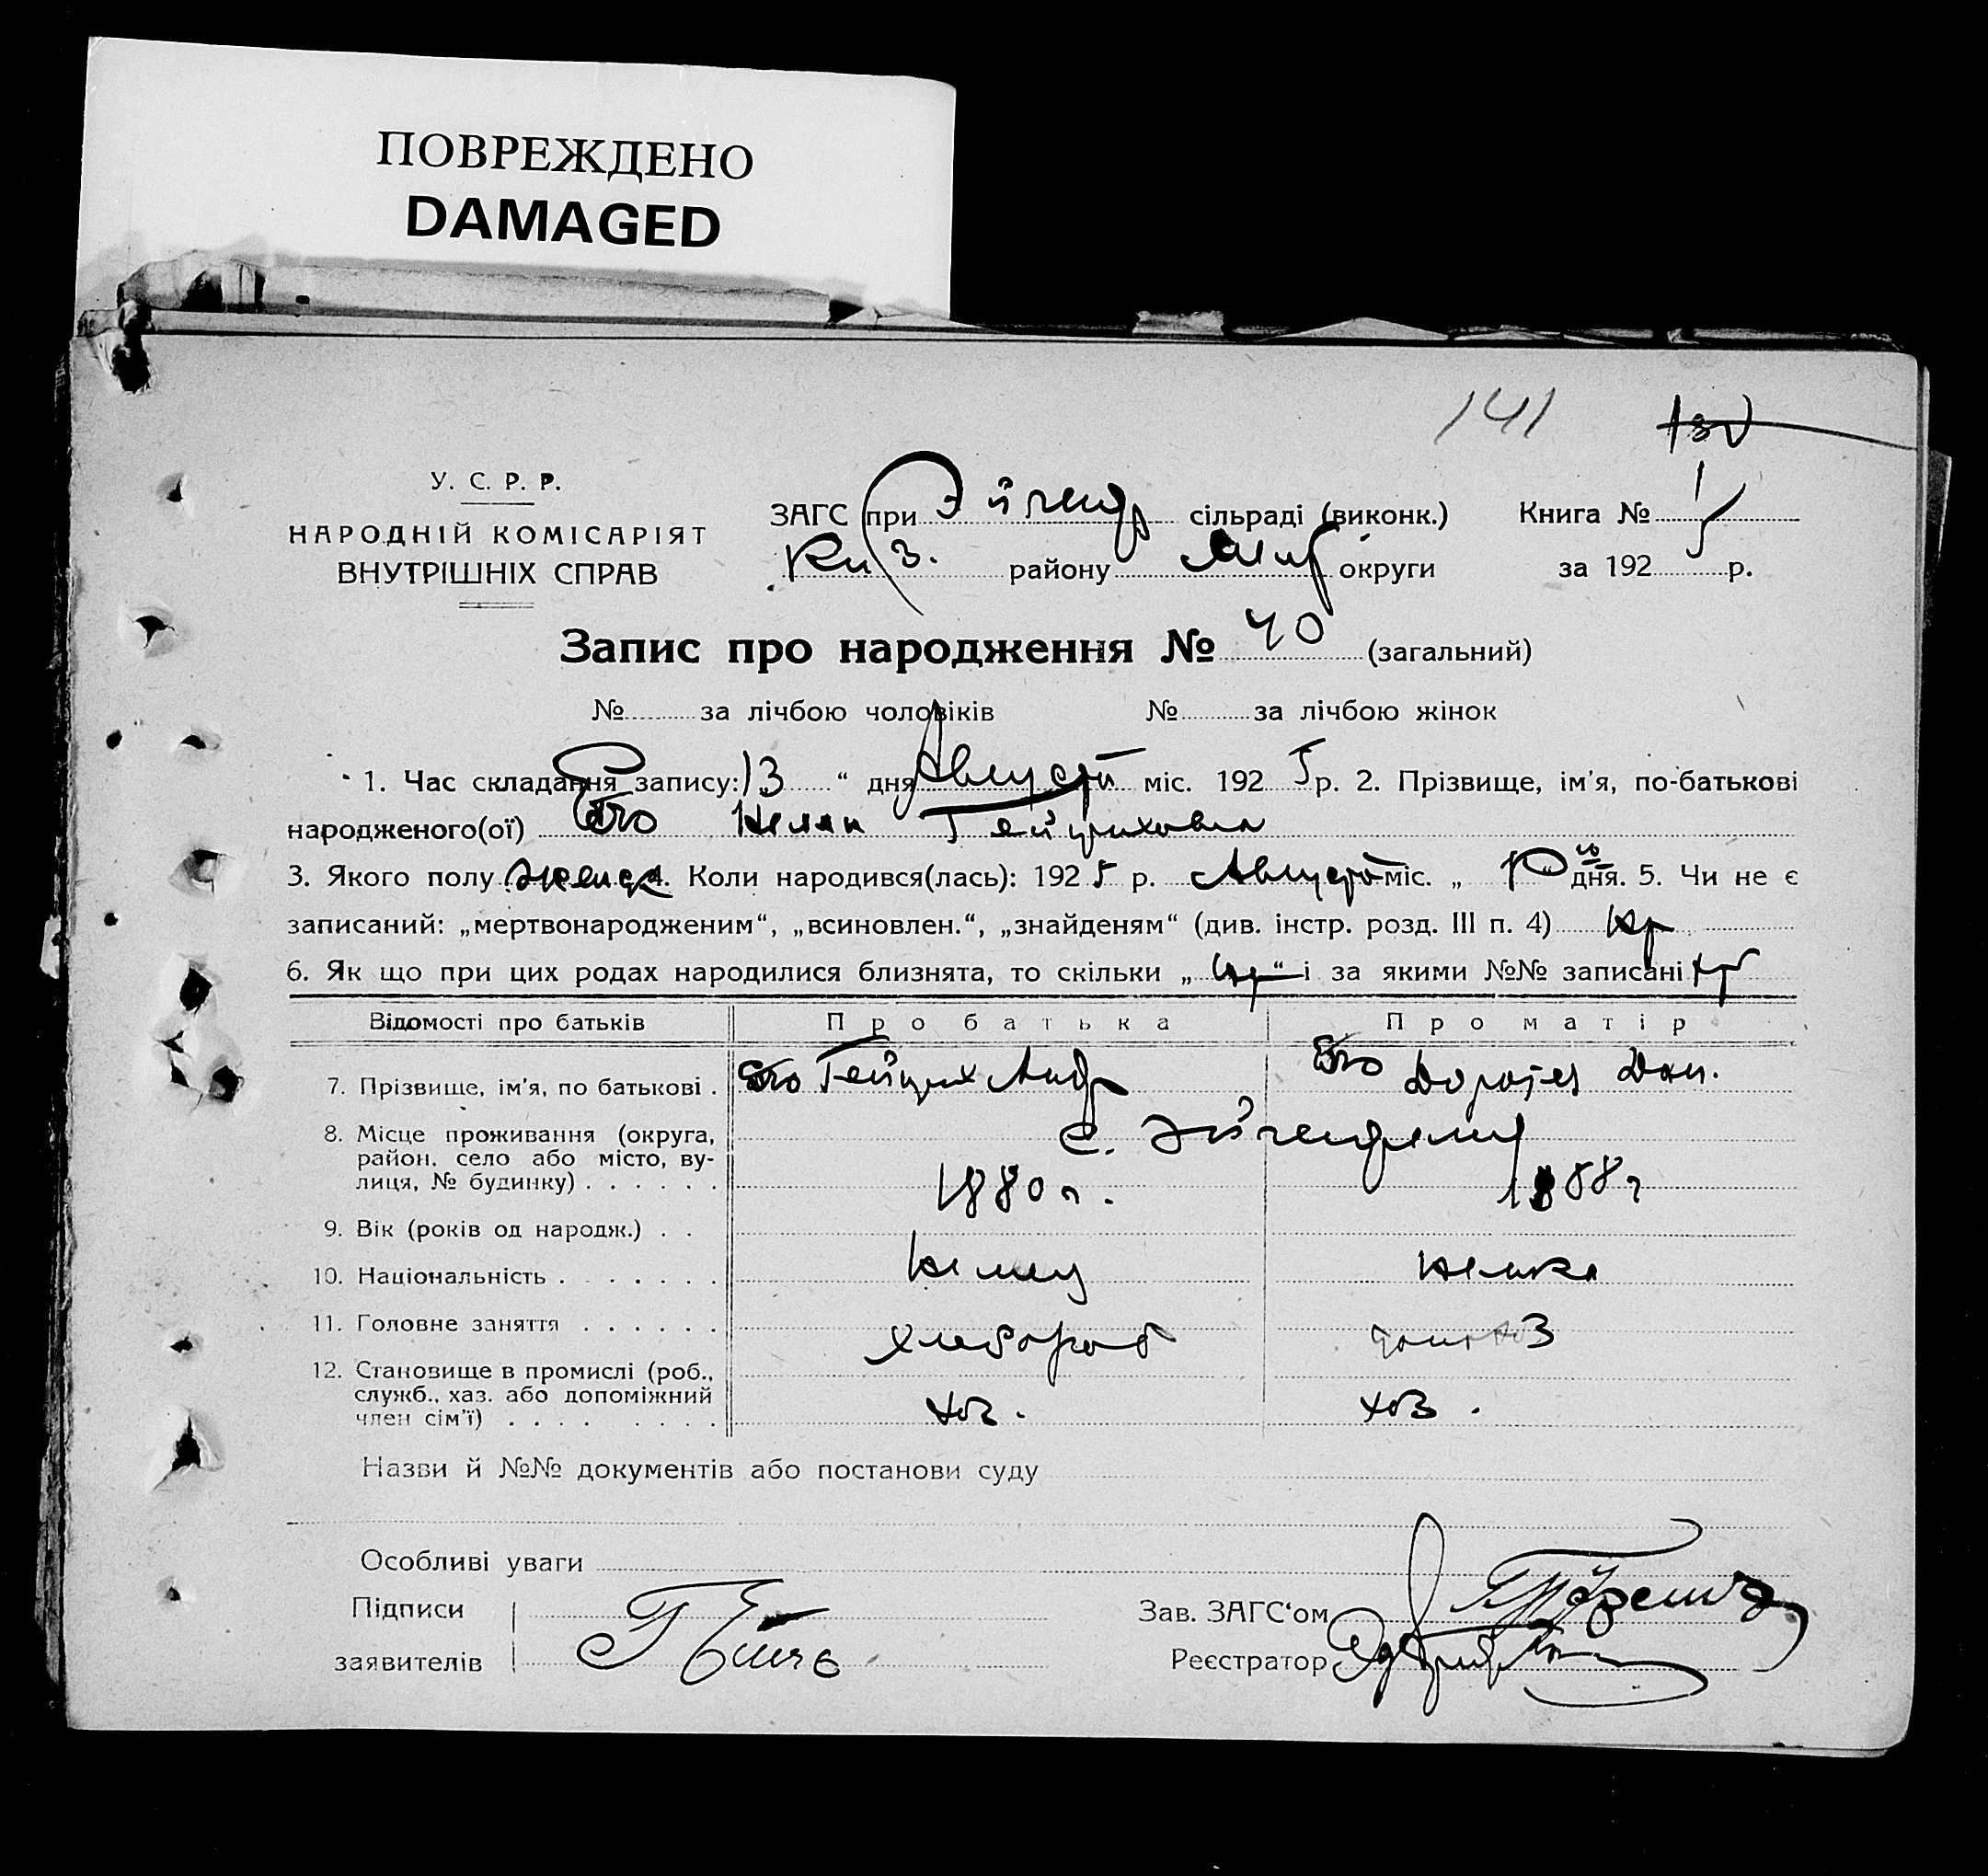 ПОВРЕЖДЕНО
DAMAGED
141
У. С. Р. Р.
НАРОДНІЙ КОМІСАРІЯТ
ВНУТРІШНІХ СПРАВ
ЗАГС при сільраді (виконк.)
району округи
Книга №
за 192 р.
Запис про народження № 40 (загальний)
№ за лічбою чоловіків № за лічбою жінок
1. Час складання запису: 13 “ дня Август міс. 192 5 р. 2. Прізвище, ім'я, по-батькові
народженого(ої) Гейнриховна
3. Якого полу женск 4. Коли народився(лась): 192 5 р. Август міс. „ дня. 5. Чи не є
записаний: „мертвонародженим“, „всиновлен.“, „знайденям“ (див. інстр. розд. III п. 4)
6. Як що при цих родах народилися близнята, то скільки „ “ і за якими №№ записані
Відомості про батьків Про батька Про матір
7. Прізвище, ім'я, по батькові . Гейнрих Анд Доротея Дан.
8. Місце проживання (округа,
район, село або місто, ву-
лиця, № будинку) . . . . . .
с. Эйгенфельд
1880 г. 1888 г
9. Вік (років од народж.) . .
10. Національність . . . . . . . немец немка
11. Головне заняття . . . . . . хлебороб
12. Становище в промислі (роб.,
служб., хаз. або допоміжний
член сім'ї) . . . . . . . . . хоз. хоз.
Назви й №№ документів або постанови суду
Особливі уваги
Підписи
заявителів
Зав. ЗАГС'ом
Реєстратор